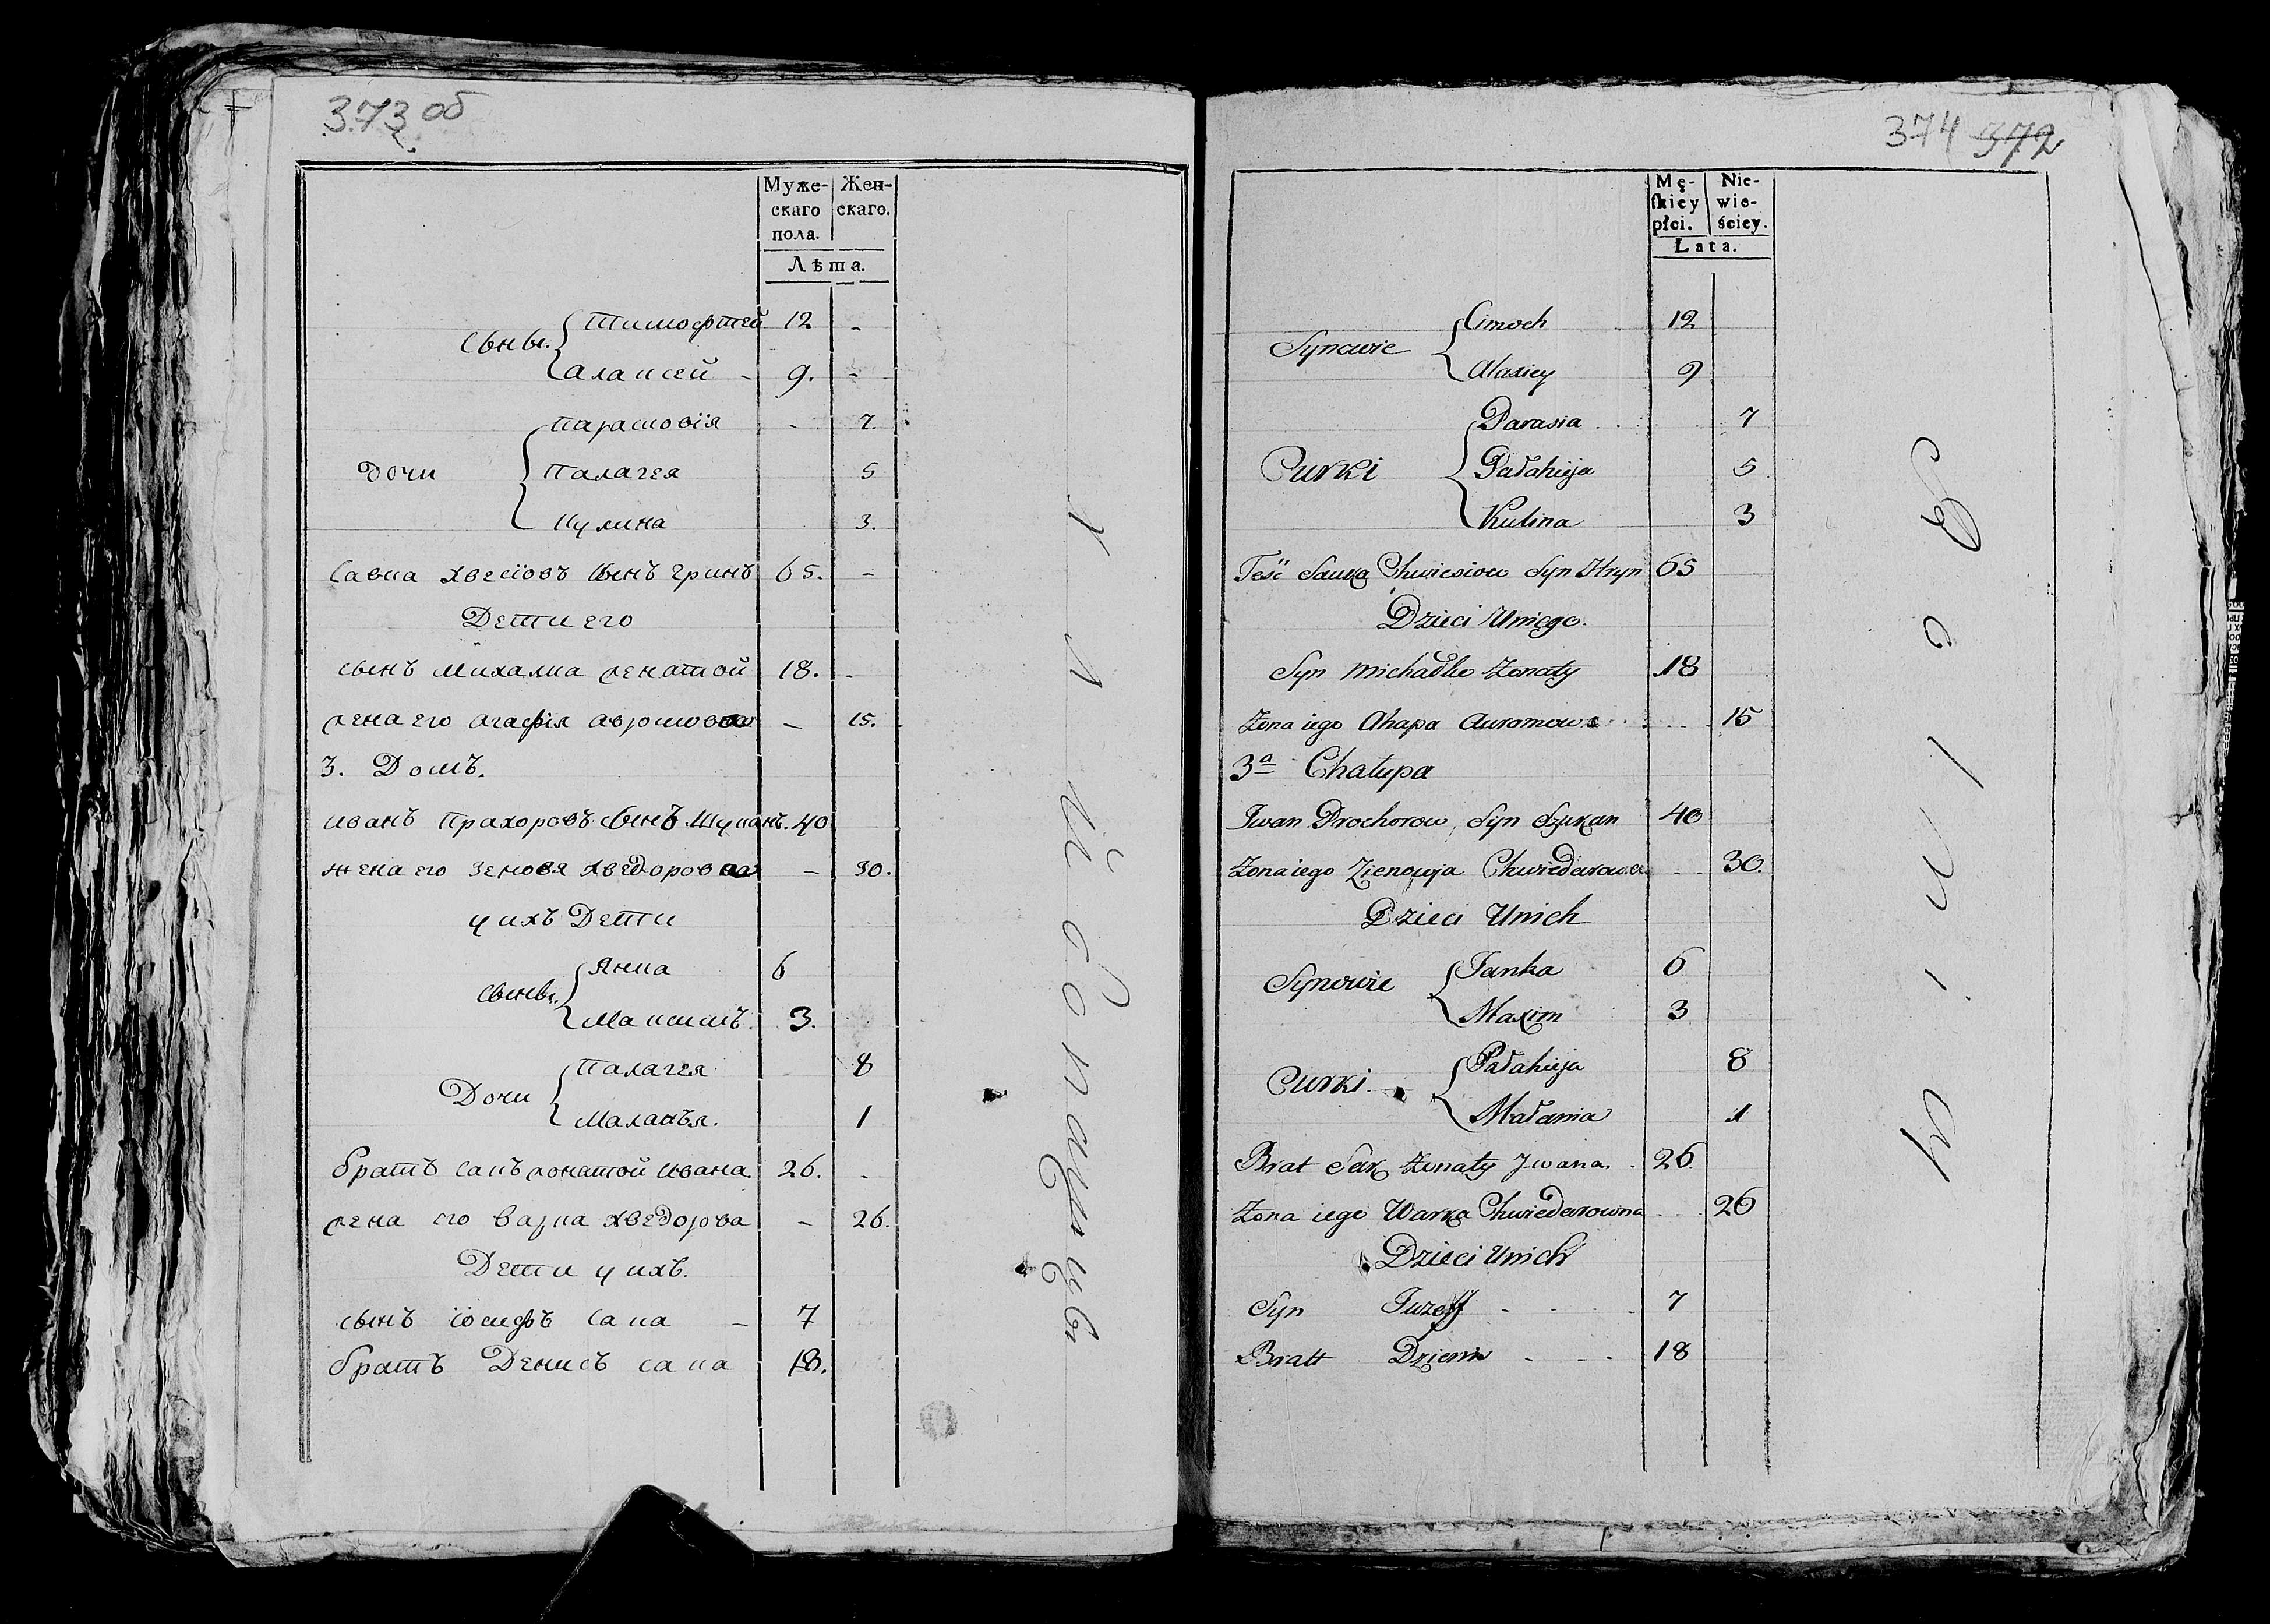 373 об
Муже-
скаго
пола.
Жен-
скаго.
Лѣта.
Сыны. Тимофтей 12 -
Алаксей - 9. -
Дочи Парасковiя - 7
Палагея 5
Кулина 3.
Савка Хвесiовъ Сынъ Гринъ 65. -
Дети его
сынъ Михалка женатой 18. -
жена его Агафiя - 15.
3. Домъ.
иванъ Прахоровъ Сынъ Шуканъ. 40
жена его Зеновя - 30.
у ихъ Дети
Сыны. Янка 6
Максимъ. 3.
Дочи Палагея 8
Маланья. 1
братъ Сакъ жонатой ивана 26. -
жена его Варка Хведорова - 26.
Дети у ихъ.
сынъ iосифъ Сака - 7
братъ Денисъ сака 18.
374 372
Mę-
skiey
płci.
Nie-
wie-
ściey.
Lata.
Synowie Cimoch 12
Alaxiey 9
Curki Parasia 7
Pałahiija 5
Kulina 3
Teść Sauka Chwiesiow Syn Hryn 65
Dzieci Uniego.
Syn Michałko Żonaty 18
Żona iego Ahapa 15
3a Chałupa
Iwan Prochorow Syn Szukan 40
Żona iego Zienowja 30.
Dzieci Unich
Synowie Janka 6
Maxim 3
Curki Pałahiija 8
Małania 1
Brat Sak Żonaty Jwana. 26.
Żona iego Warka Chwiedarowna 26
Dzieci Unich
Syn Juzeff 7
Bratt Dzienis 18